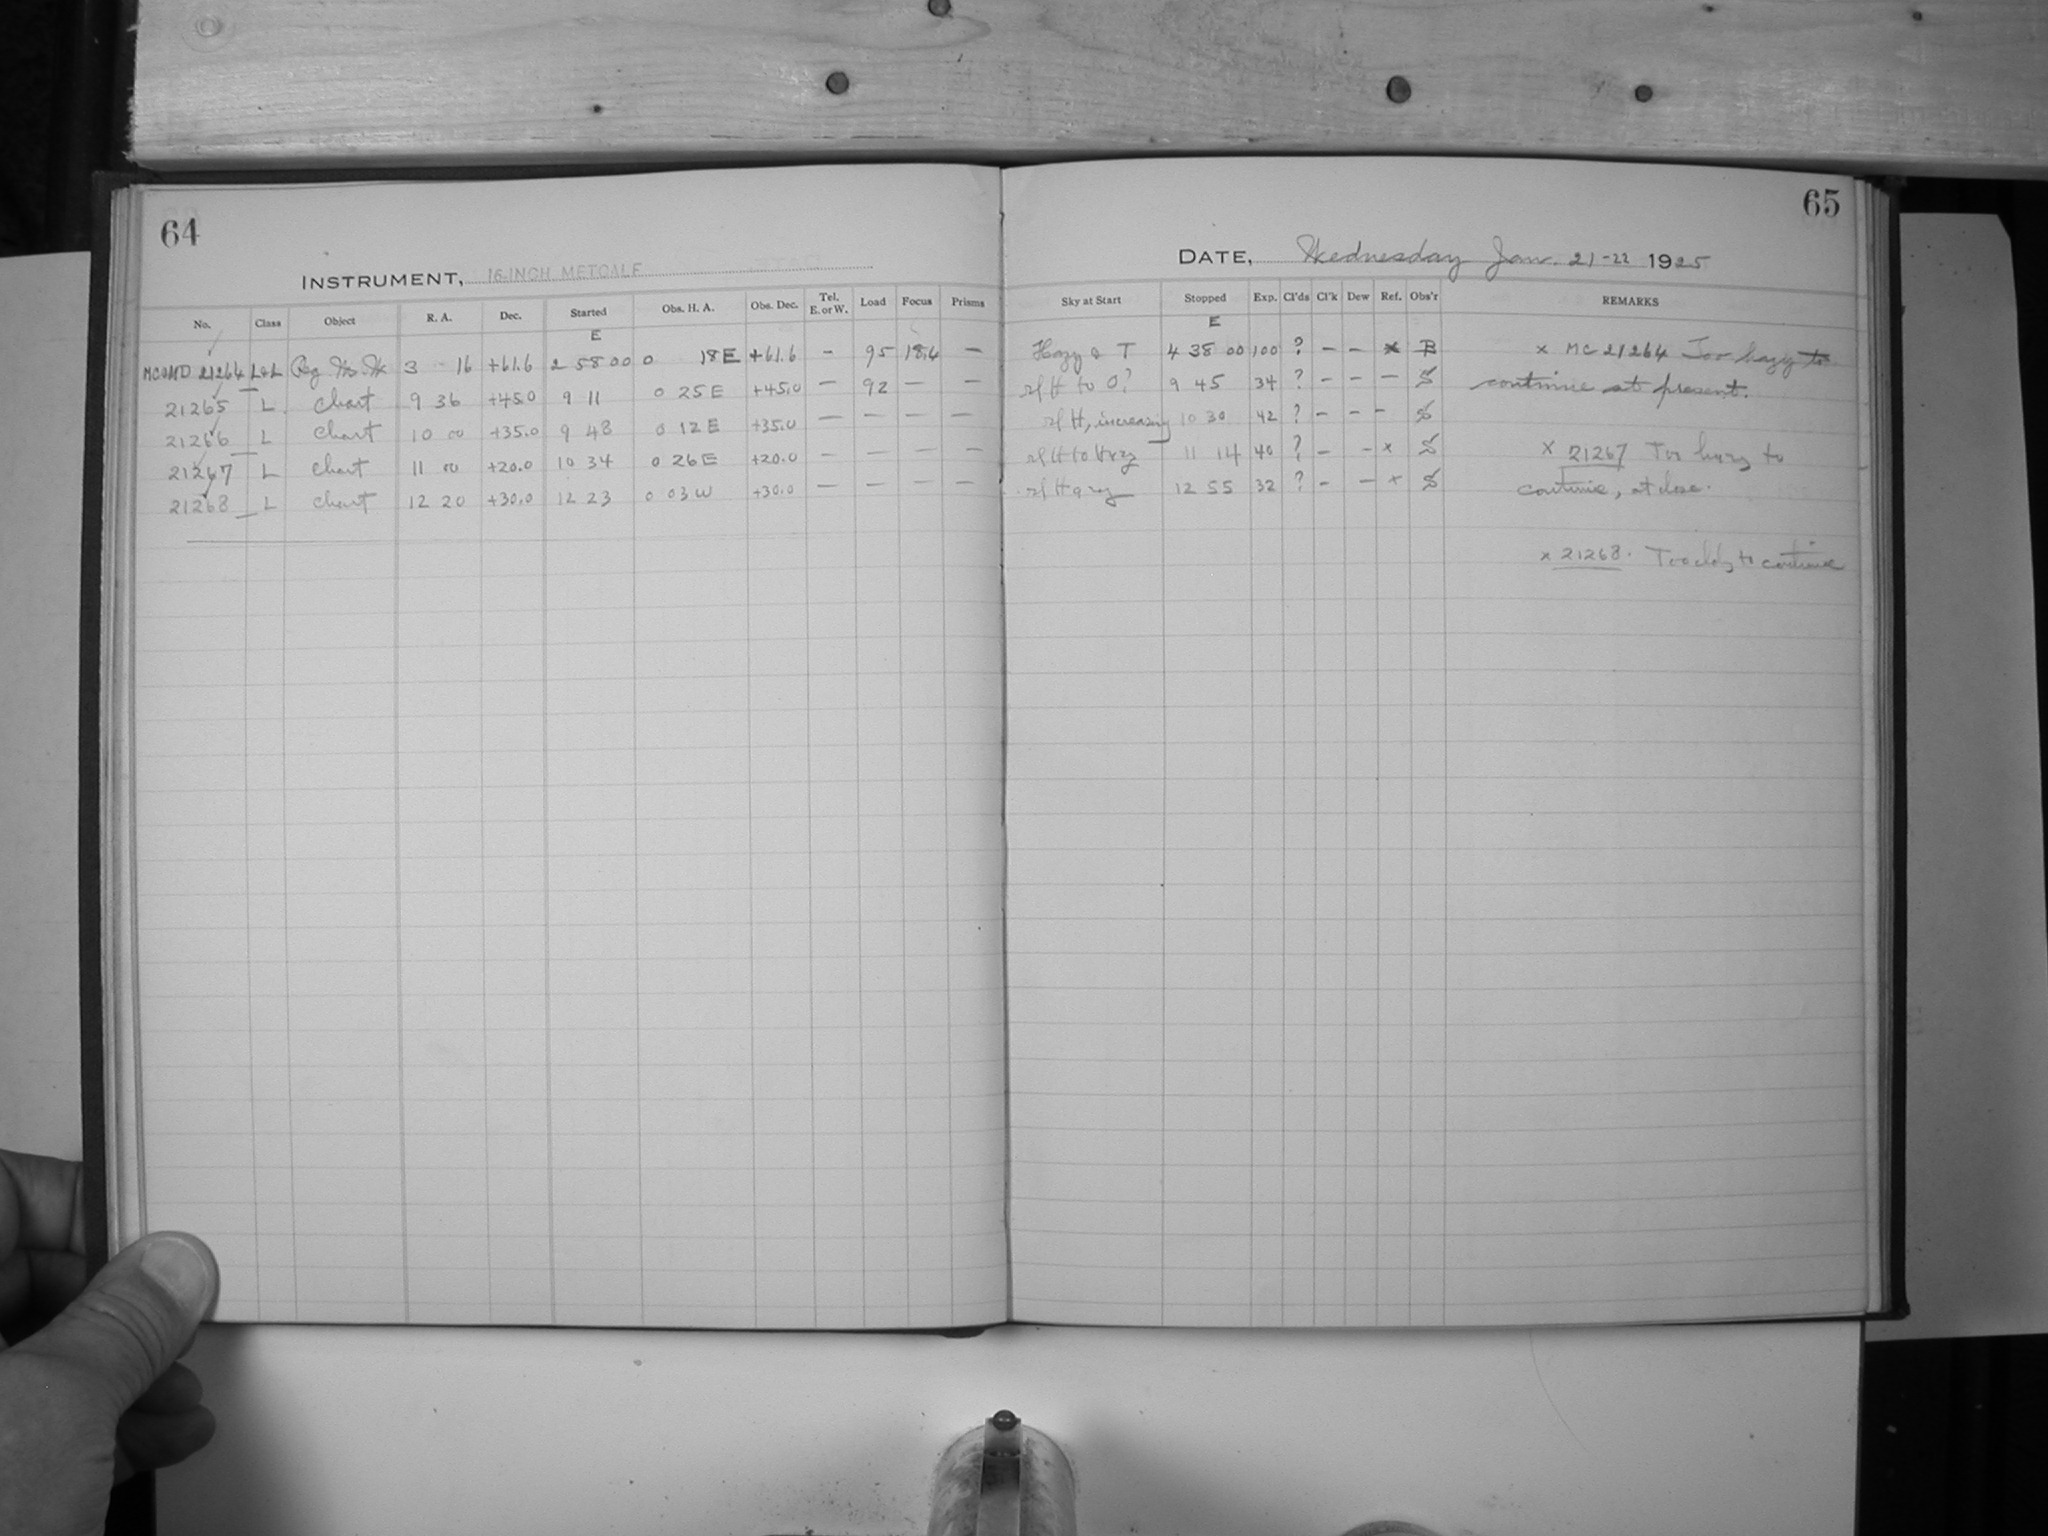 64
INSTRUMENT, 16-INCH METCALF
No. Class Object R. A. Dec. Started Obs. H. A. Obs. Dec. Tel. E. or W. Load Focus Prisms
E
21264 L 3 16 +61.6 2 58 00 0 18 E +61.6 - 95 18.4 -
21265 L chart 9 36 +45.0 9 11 0 25 E +45.0 - 92 - -
21266 L chart 10 00 +35.0 9 48 0 12 E +35.0 - - - -
21267 L chart 11 00 +20.0 10 34 0 26 E +20.0 - - - -
21268 L chart 12 20 +30.0 12 23 0 03 W +30.0 - - - -
65
DATE, Wednesday Jan. 21-22 1925
Sky at Start Stopped Exp. Cl'ds Cl'k Dew Ref. Obs'r REMARKS
E
Hazy & T 4 38 00 100 ? - - x B x MC 21264 Too hazy to
sl H to 0? 9 45 34 ? - - - S continue at present.
sl H, increasing 10 30 42 ? - - - S
sl H to Hazy 11 14 40 ? - - x S x 21267 Too hazy to
sl H 12 55 32 ? - - x S continue, at close.
x 21268. Too cldy to continue